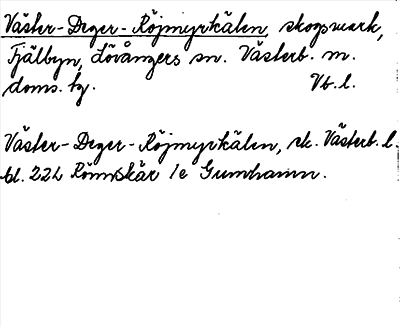 Väster-Deger-Röjmyrkälen, skogsmark,
Fjälbyn, Lövångers sn. Västerb. m.
doms. tg. Vb. l.
Väster-Deger-Röjmyrkälen, sk. Västerb. l.
bl. 222 Rönnskär 1e Gumhamn.